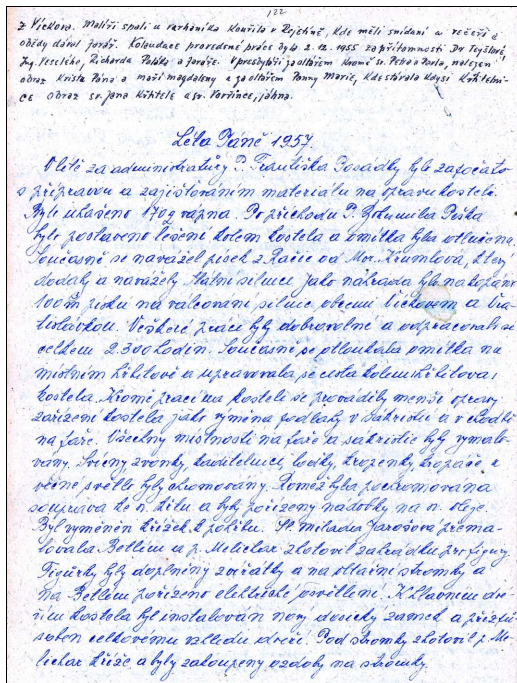 122
z Víckova. Malíři spali u varhaníka Kouřila v Rojetíně, kde měli snídani a večeři a
obědy dával farář. Kolaudace provedené práce byla 2.12.1955 za přítomnosti Dr Teyšlové,
Ing. Veselého, Richarda Poláka a faráře. V presbyteři za oltářem kromě sv. Petra a Pavla, nalezen
obraz Krista Pána a maří magdaleny a za oltářem Panny Marie, kde stávala kdysi Křtitelni-
ce obraz sv. Jana Křtitele a sv. Vavřince, jáhna.
Léta Páně 1957.
V létě za administrátury P. Františka Posádky bylo započato
s přípravou a zajišťováním materiálu na opravu kostela.
Bylo uhašeno 170 q vápna. Po příchodu P. Bohumila Peška
bylo postaveno lešení kolem kostela a omítka byla otlučena.
Současně se navážel písek z Rakšic od Mor. Krumlova, který
dodaly a navážely státní silnice. Jako náhrada bylo nakopáno
100 m písku na válcování silnic obcemi Víckovem a
Veškeré práce byly dobrovolné a odpracovali se
celkem 2.300 hodin. Současně se otloukala omítka na
místním hřbitově a upravovala se cesta kolem hřbitova i
kostela. Kromě prací na kostele se prováděly menší opravy
zařízení kostela jako výměna podlahy v sakristii a v chodbě
na faře. Všechny místnosti na faře a sakristie byly vymalo-
vány. Svícny zvonky, kaditelnici, loďky, kropenky, kropáče, a
věčné světlo byly chromovány. Rovněž byla pochromována
souprava ke sv. křtu a byly pořízeny nádobky na sv. oleje.
Byl vyměněn křížek k pohřbu. Sl. Milada Jarošová přema-
lovala Betlém a p. Melichar zhotovil zahrádku pro figury.
Figurky byly doplněny zvířátky a na oltářní stromky a
na Betlém pořízeno elektrické osvětlení. K hlavním dve-
řím kostela byl instalován nový dosický zámek a přizpů-
soben celkovému vzhledu dveří. Pod stromky zhotovil p. Me-
lichar kříže a byly zakoupeny ozdoby na stromky.